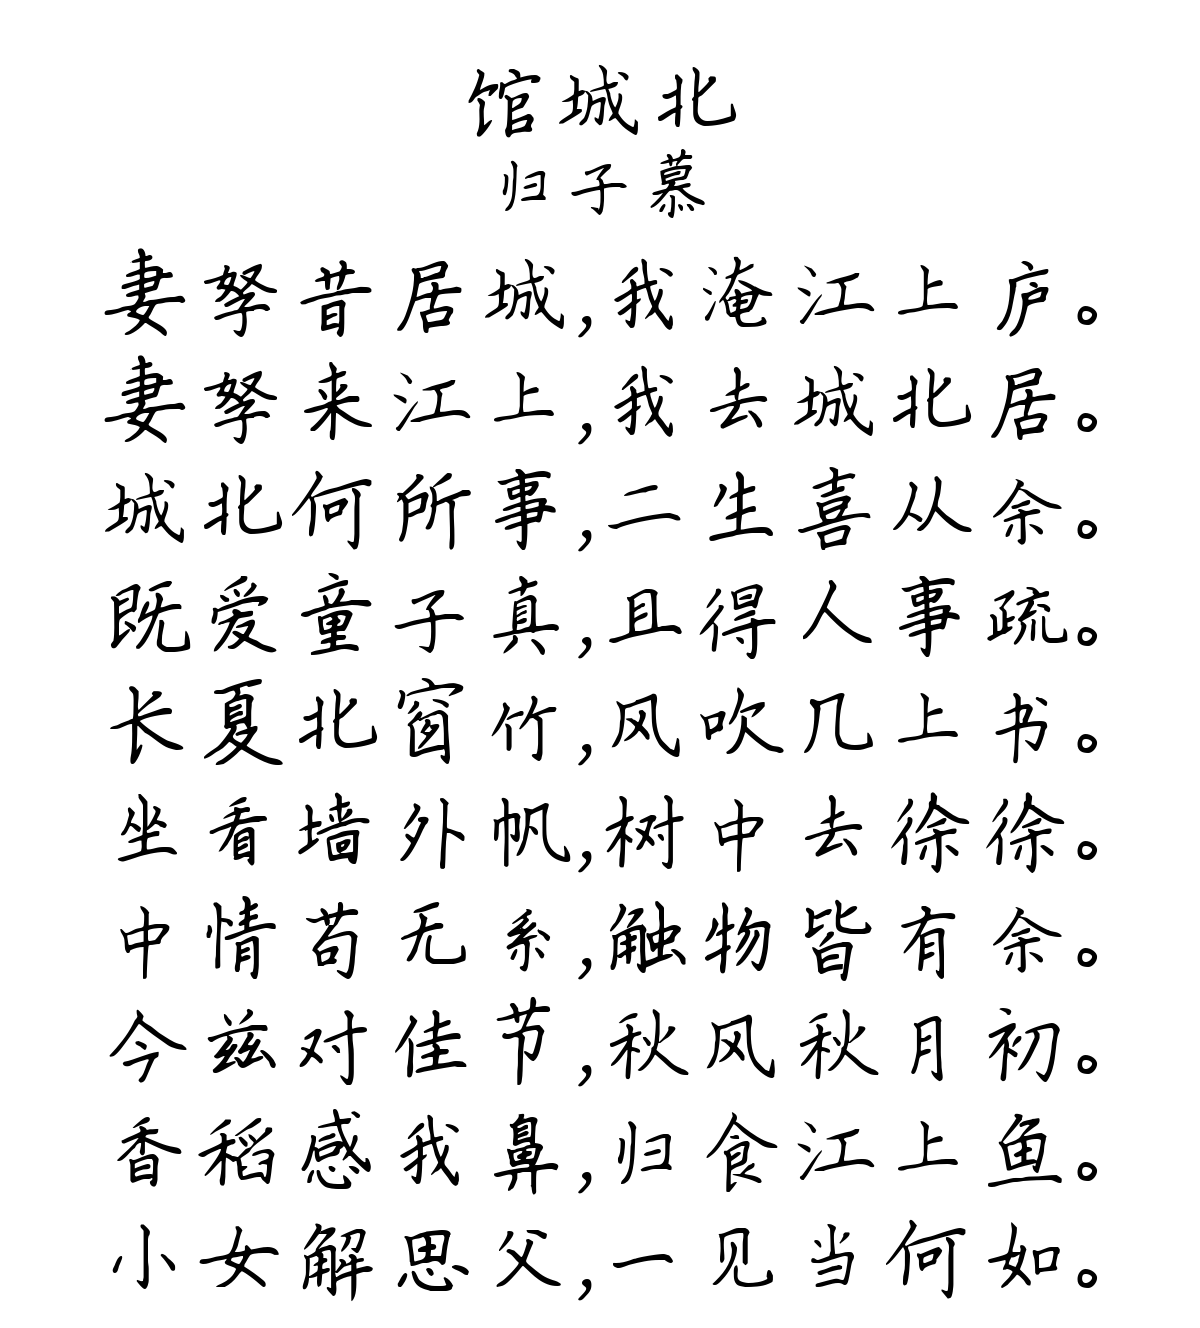 馆城北
归子慕
妻孥昔居城,我淹江上庐。
妻孥来江上,我去城北居。
城北何所事,二生喜从余。
既爱童子真,且得人事疏。
长夏北窗竹,风吹几上书。
坐看墙外帆,树中去徐徐。
中情苟无系,触物皆有余。
今兹对佳节,秋风秋月初。
香稻感我鼻,归食江上鱼。
小女解思父,一见当何如。